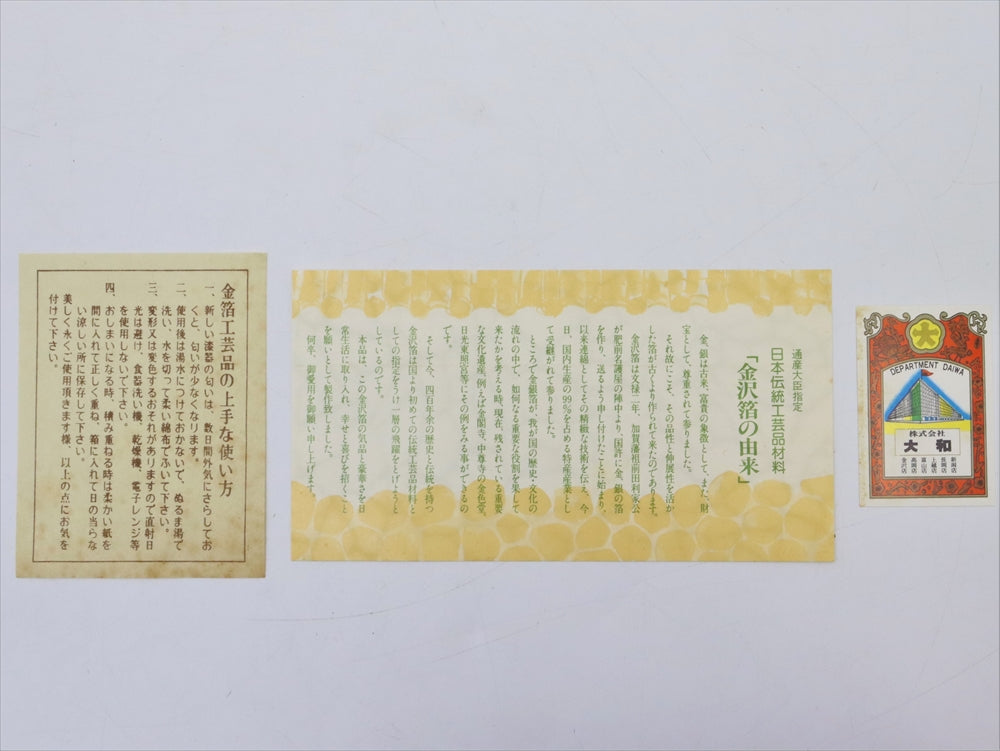 金箔工芸品の上手な使い方
一、新しい漆器の匂いは、数日間外気にさらしてお
くと、匂いが少なくなります。
二、使用後は湯水につけておかないで、ぬるま湯で
洗い、水を切って柔い綿布でふいて下さい。
三、変形又は変色するおそれがありますので直射日
光は避け、食器洗い機、乾燥機、電子レンジ等
を使用しないで下さい。
四、おしまいになる時、積み重ねる時は柔かい紙を
間に入れて正しく重ね、箱に入れて日の当らな
い涼しい所に保存して下さい。
美しく永くご使用頂きます様、以上の点にお気を
付けて下さい。
通産大臣指定
日本伝統工芸品材料
「金沢箔の由来」
金、銀は古来、富貴の象徴として、また、財
宝として、尊重されて参りました。
それ故にこそ、その品性と伸展性を活か
した箔が古くより作られて来たのであります。
金沢箔は文禄二年、加賀藩祖前田利家公
が肥前名護屋の陣中より、国許に金、銀の箔
を作り、送るよう申し付けたことに始まり、
以来連綿としてその精緻な技術を伝え、今
日、国内生産の99%を占める特産産業とし
て受継がれて参りました。
ところで金銀箔が、我が国の歴史・文化の
流れの中で、如何なる重要な役割を果して
来たかを考える時、現在、残されている重要
な文化遺産、例えば金閣寺、中尊寺の金色堂、
日光東照宮等にその例をみる事ができるの
です。
そして今、四百年余の歴史と伝統を持つ
金沢箔は国より初めての伝統工芸品材料と
しての指定をうけ一層の飛躍をとげようと
しているのです。
本品は、この金沢箔の気品と豪華さを日
常生活に取り入れ、幸せと喜びを招くこと
を願いとして製作致しました。
何卒、御愛用を御願い申し上げます。
大
DEPARTMENT DAIWA
株式会社
大和
新潟店
長岡店
上越店
富山店
高岡店
金沢店